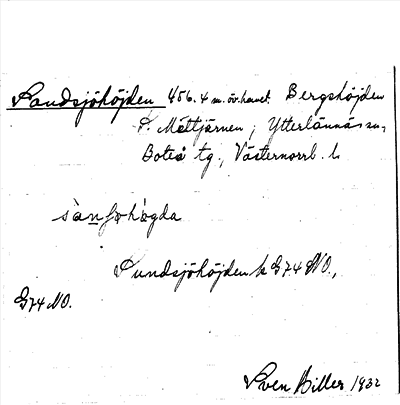 Sandsjöhöjden 456.4 m. öv. havet. Bergshöjden
S. Mettjärnen, Ytterlännäs sn,
Boteå tg., Västernorrl. l.
sànføhøgda
Sundsjöhöjden k G74 NO.,
G74 NO.
Sven Biller 1932